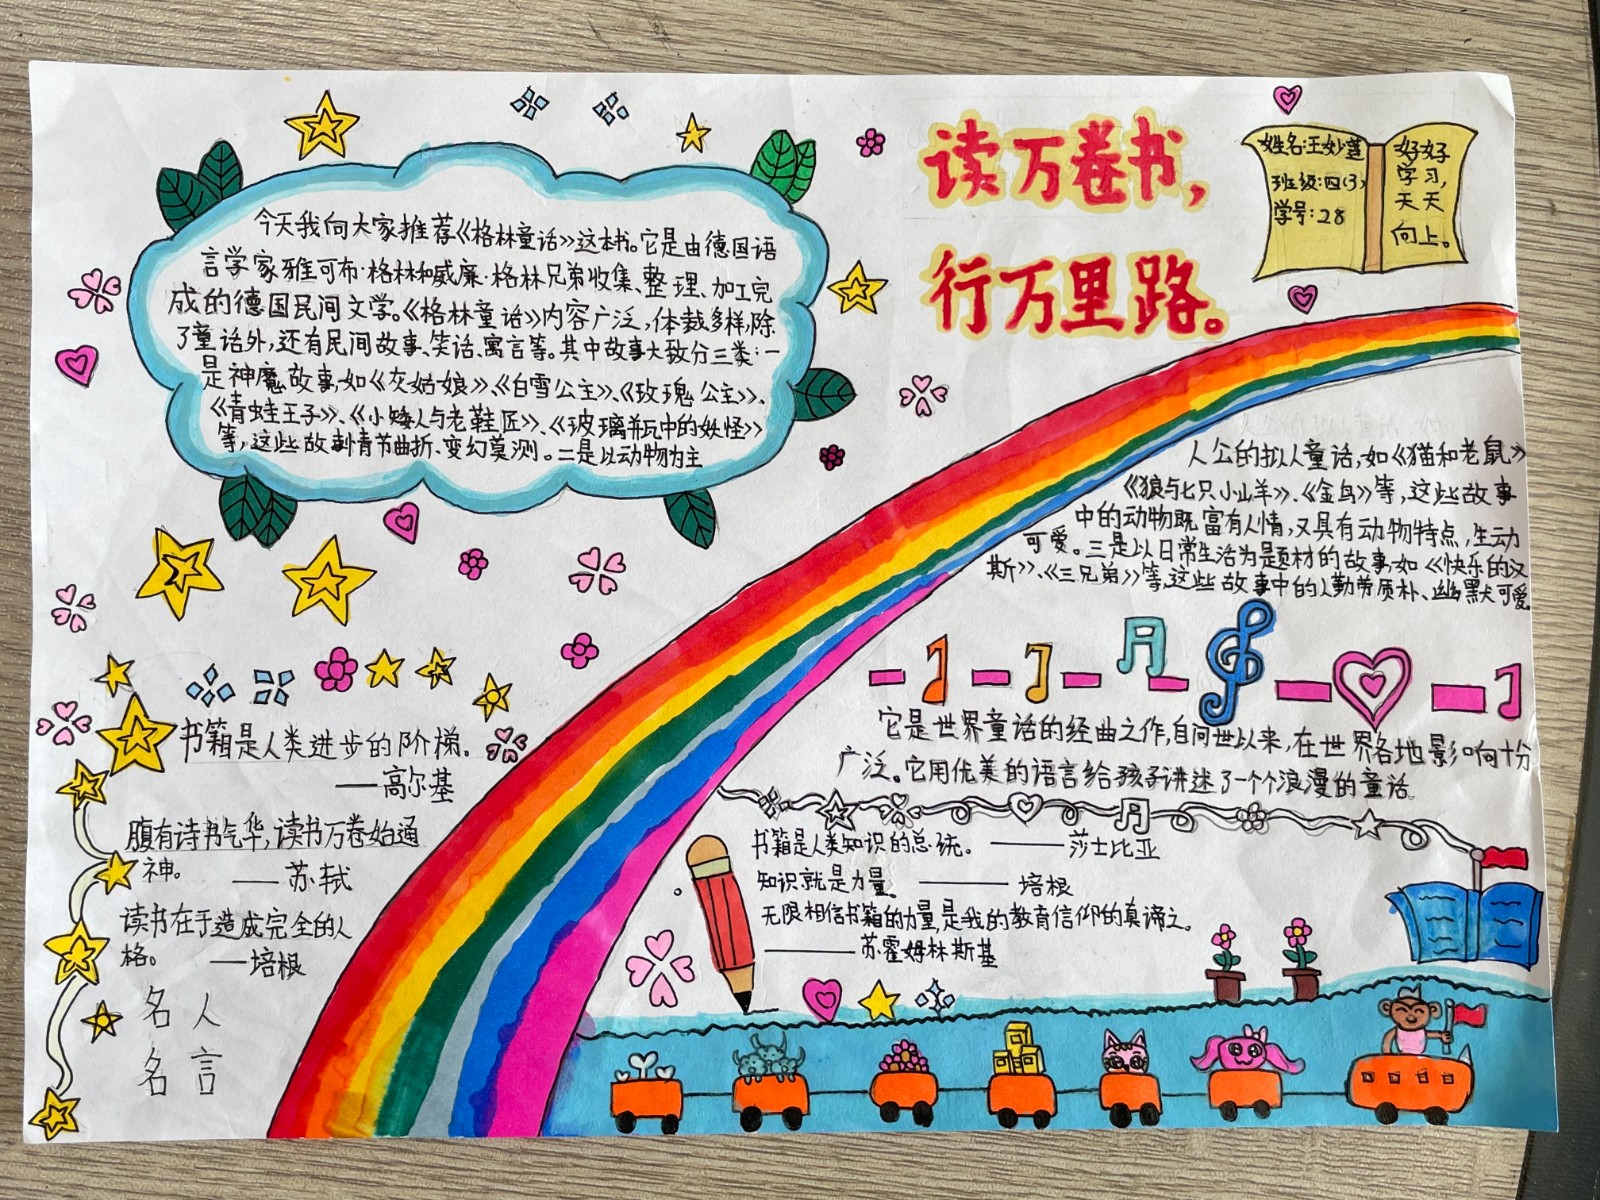 读万卷书，
行万里路。
姓名:王妙莲
班级:四(3)
学号:28
好好
学习，
天天
向上。
今天我向大家推荐《格林童话》这本书。它是由德国语
言学家雅可布·格林和威廉·格林兄弟收集、整理、加工完
成的德国民间文学。《格林童话》内容广泛，体裁多样，除
了童话外，还有民间故事、笑话、寓言等。其中故事大致分三类：一
是神魔故事，如《灰姑娘》、《白雪公主》、《玫瑰公主》、
《青蛙王子》、《小矮人与老鞋匠》、《玻璃瓶中的妖怪》
等，这些故事情节曲折、变幻莫测。二是以动物为主
人公的拟人童话，如《猫和老鼠》
《狼与七只小山羊》、《金鸟》等，这些故事
中的动物既富有人情，又具有动物特点，生动
可爱。三是以日常生活为题材的故事，如《快乐的汉
斯》、《三兄弟》等，这些故事中的人勤劳质朴、幽默可爱
它是世界童话的经曲之作，自问世以来，在世界各地影响十份
广泛。它用优美的语言给孩子讲述了一个个浪漫的童话
书籍是人类进步的阶梯。
——高尔基
腹有诗书气华，读书万卷始通
神。 ——苏轼
读书在于造成完全的人
格。 ——培根
名人
名言
书籍是人类知识的总统。 ——莎士比亚
知识就是力量。 ——培根
无限相信书籍的力量是我的教育信仰的真谛之。
——苏霍姆林斯基